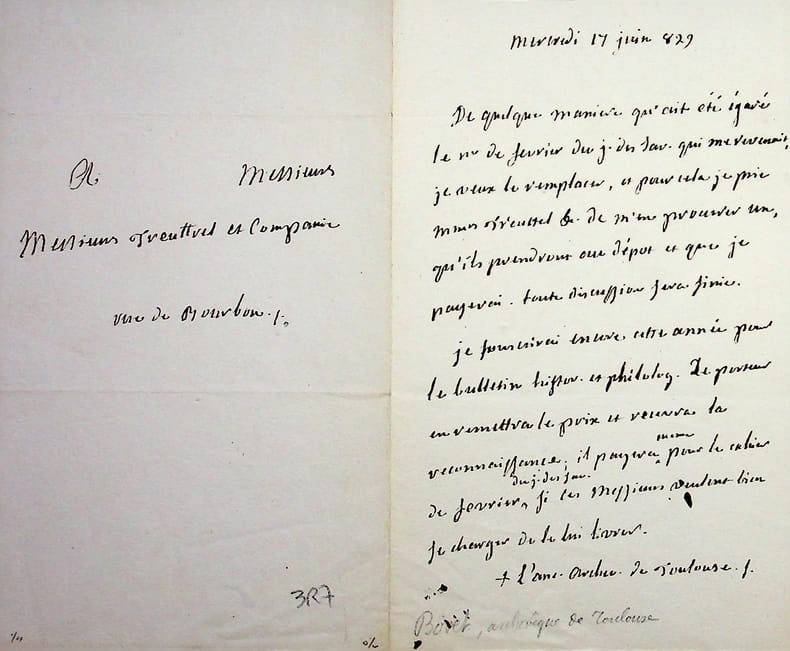 A Messieurs
Messieurs Treuttel et Compagnie
rue de Bourbon.
3R7
Mercredi 17 juin 829
De quelque maniere qu'ait été égaré
le n° de fevrier du j. des sav. qui me revenait,
je veux le remplacer, et pour cela je prie
mmrs Treuttel &. de m'en procurer un,
qu'ils prendront au dépot et que je
payerai. toute discussion sera finie.
je souscrirai encore cette année pour
le bulletin histor. et philolog. Le porteur
en remettra le prix et recevra la
reconnaissance; il payera même pour le cahier
de fevrier, du j. des sav. si ces Messieurs veulent bien
se charger de le lui livrer.
+ L'anc. archev. de Toulouse.
archevêque de Toulouse